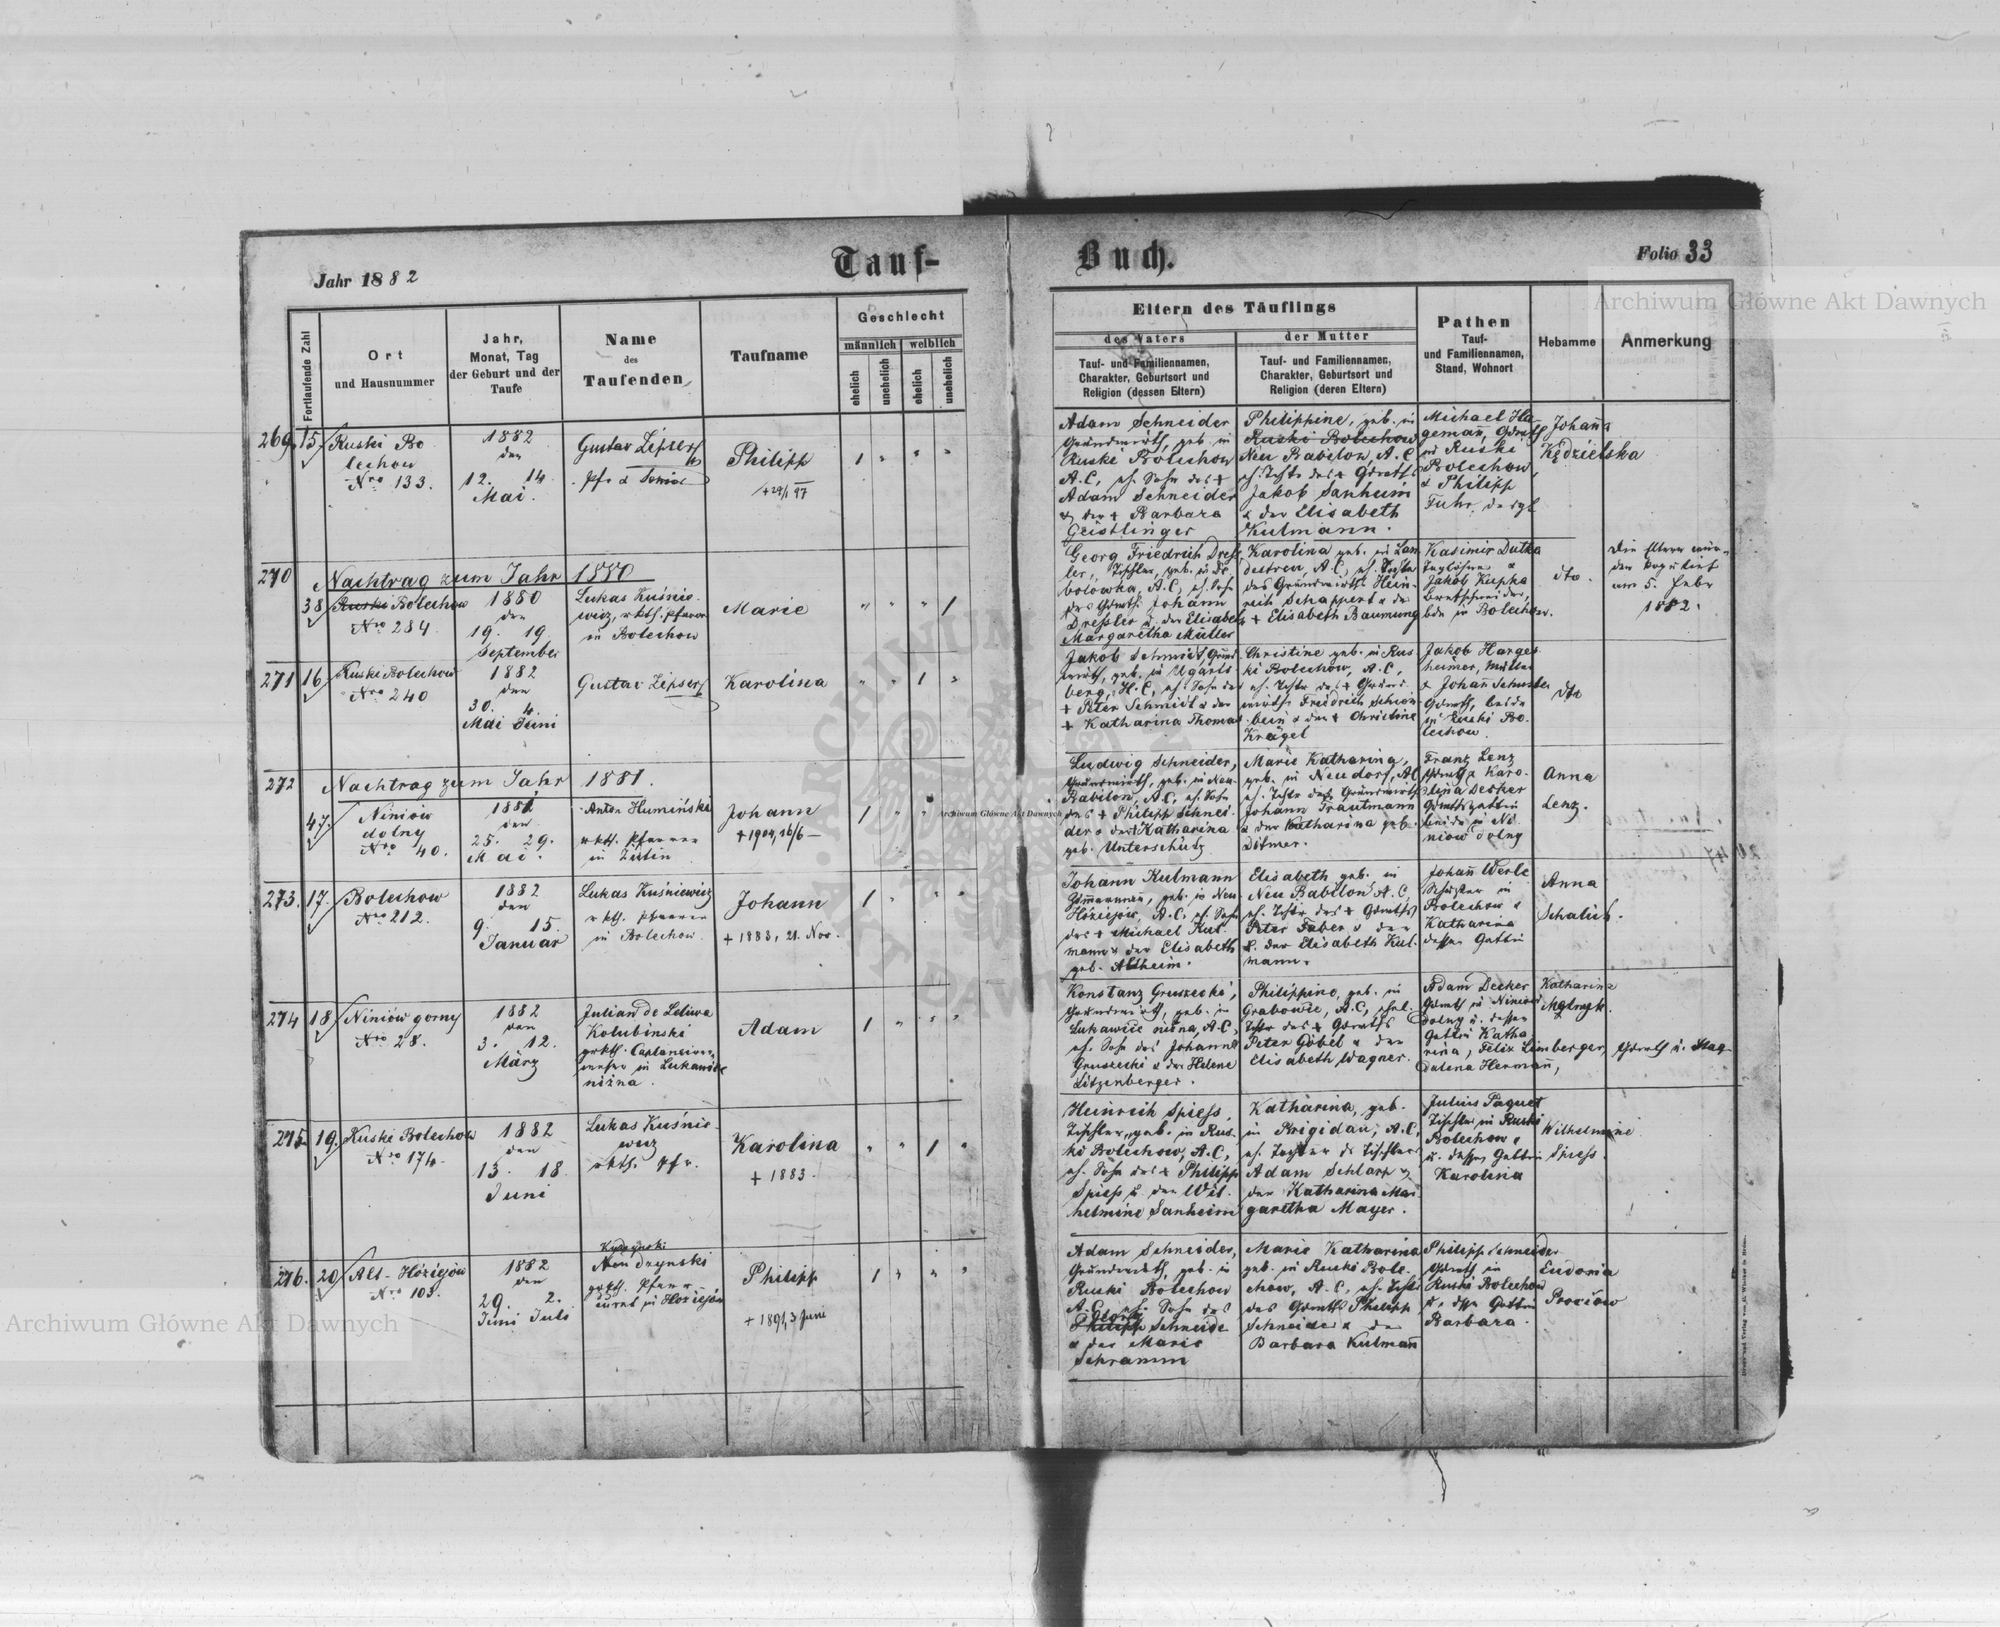 Tauf-
Buch.
Jahr 1882
Folio 33
Fortlaufende Zahl
Ort
und Hausnummer
Jahr,
Monat, Tag
der Geburt und der
Taufe
Name
des
Taufenden
Taufname
Geschlecht
männlich
weiblich
ehelich
unehelich
ehelich
unehelich
Eltern des Täuflings
des Vaters
Tauf- und Familiennamen,
Charakter, Geburtsort und
Religion (dessen Eltern)
der Mutter
Tauf- und Familiennamen,
Charakter, Geburtsort und
Religion (deren Eltern)
Pathen
Tauf-
und Familiennamen,
Stand, Wohnort
Hebamme
Anmerkung
269. 15.
Ruski Bo
lechow
Nro 133.
1882
den
12. 14.
Mai.
Gustav Zipser
Pfr & Senior
Philipp
1 " " "
Adam Schneider
Grundwirth, geb. in
Ruski Bolechow
A.C., eh. Sohn des +
Adam Schneider
& der + Barbara
Geistlinger
Philippine, geb. in
Ruski Bolechow
Neu Babilon, A.C.
Jakob Sanheim
& der Elisabeth
Kulmann.
Michael Ha
gemañ,
in Ruski
Bolechow,
& Philipp
Fuhr,
Johanna
Kędzielska
270
Nachtrag zum Jahr 1880
38
Ruski Bolechow
Nro 284
1880
den
19. 19.
September
Lukas Kuśnie-
wicz, rkth. Pfarrer
in Bolechow
Marie
" " " 1
Georg Friedrich Dreß-
ler, Tischler, geb. in De
bolowka, A.C., eh. Sohn
des Gdwrth. Johann
Dreßler u. der Elisabeth
Margaretha Müller
Karolina geb. in Lan
destreu, A.C., eh. Tochter
des Grundwirths Hein-
rich Schappert & der
+ Elisabeth Baumung
Kasimir Dutka
Taglöhner &
Jakob Kupka
Brettschneider,
bde in Bolechow.
dto.
Die Eltern wur-
den kopulirt
am 5. Feber
1882.
271 16
Ruski Bolechow
Nro 240
1882
den
30. 4.
Mai Juni
Gustav Zipser
Karolina
" " 1 "
Jakob Schmidt, Grund-
wirth, geb. in Ugarts
berg, H.C., eh. Sohn des
+ Peter Schmidt & der
+ Katharina Thomas
Christine geb. in Rus
ki Bolechow, A.C.,
eh. Tochter des + Grund-
wirths Friedrich Schön
bein & der + Christine
Krägel
Jakob Harges
heimer, Müller
& Johañ Schuster
Gdwrth, beide
in Ruski Bo
lechow.
dto
272
Nachtrag zum Jahr 1881.
47.
Niniów
dolny
Nro 40.
1881
den
25. 29.
Mai.
Anton Humiński
rkth. Pfarrer
in Zulin
Johann
+ 1904, 16/6 —
1 " " "
Ludwig Schneider,
Grundwirth, geb. in Neu-
Babilon, A.C., eh. Sohn
des + Philipp Schnei-
der & der Katharina
geb. Unterschütz
Marie Katharina,
geb. in Neudorf, A.C.
eh. Tochter des Grundwirths
Johann Trautmann
& der Katharina geb.
Ditmer.
Franz Lenz
Gdwrth & Karo-
lina Decker
Gdwrthsgattin
beide in Ni
niow dolny
Anna
Lenz.
273. 17.
Bolechow
Nro 212.
1882
den
9. 15.
Januar
Lukas Kuśniewicz
rkth. Pfarrer
in Bolechow.
Johann
+ 1883, 21. Nov.
1 " " "
Johann Kulmann
geb. in Neu
Hoziejow, A.C., eh. Sohn
des + Michael Kul-
mann & der Elisabeth
geb. Altheim.
Elisabeth geb. in
Neu Babilon A.C.,
eh. Tochter des + Gdwrths
Peter Faber & der
der Elisabeth Kul-
mann.
Johañ Werle
Schuster in
Bolechow &
Katharina
dessen Gattin
Anna
274 18
Niniów gorny
Nro 28.
1882
den
3. 12.
März
Julian de Leliwa
Kolubinski
grkth. Caplaneiver-
weser in Lukawice
niżna.
Adam
1 " " "
Konstanz Gruszecki,
Grundwirth, geb. in
Lukawice niżna, A.C.,
eh. Sohn des Johann
Gruszecki & der Helene
Litzenberger.
Philippine, geb. in
Grabowce, A.C., ehel.
Tochter des + Gdwrths
Peter Göbel & der
Elisabeth Wagner.
Adam Decker
Gdwrth in Niniow
dolny u. dessen
Gattin Katha
rina, Felix Limberger, Gdwrth u. Mag-
dalena Hermañ,
Katharina
275 19.
Ruski Bolechow
Nro 174.
1882
den
13. 18.
Juni
Lukas Kuśnie-
wicz
rkth. Pfr.
Karolina
+ 1883.
" " 1 "
Heinrich Spiess,
Tischler, geb. in Rus-
ki Bolechow, A.C.,
eh. Sohn des + Philipp
Spiess u. der Wil-
helmine Sanheim
Katharina, geb.
in Brigidau, A.C.,
eh. Tochter d. Tischlers
Adam Schlarp &
der Katharina Mar
garetha Mayer.
Julius Paquet
Tischler in Ruski
Bolechow,
u. dessen Gattin
Karolina
Wilhelmine
Spiess.
276. 20
Alt-Hoziejów
Nro 103.
1882
den
29. 2.
Juni Juli
grkth. Pfarr-
curat in Hoziejów
Philipp
+ 1891, 3 Juni
1 " " "
Adam Schneider,
Grundwirth, geb. in
Ruski Bolechow
A.C., eh. Sohn des
Georg
Philipp Schneider
& der Marie
Schramm
Marie Katharina
geb. in Ruski Bole-
chow, A.C., eh. Tochter
des Gdwrths Philipp
Schneider & der
Barbara Kulmañ
Philipp Schneider
Gdwrth in
Ruski Bolechow
u. dssn Gattin
Barbara.
Eudonia
Archiwum Główne Akt Dawnych
Archiwum Główne Akt Dawnych
Archiwum Główne Akt Dawnych